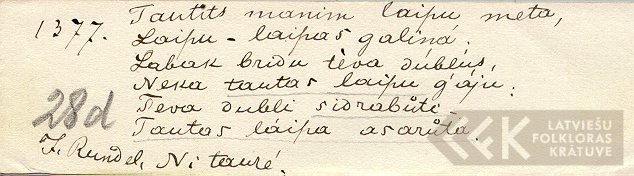 1377. Tautīts manim laipu meta,
Laipu-laipas galiņá;
Labak bridu tèva dubļus,
Neka tautas laipu gáju;
Teva dubli sidrabûti
28d
Tautas láipa asarůta.
F. Rundel, Nitauré.
LATVIEŠU
FOLKLORAS
KRĀTUVE